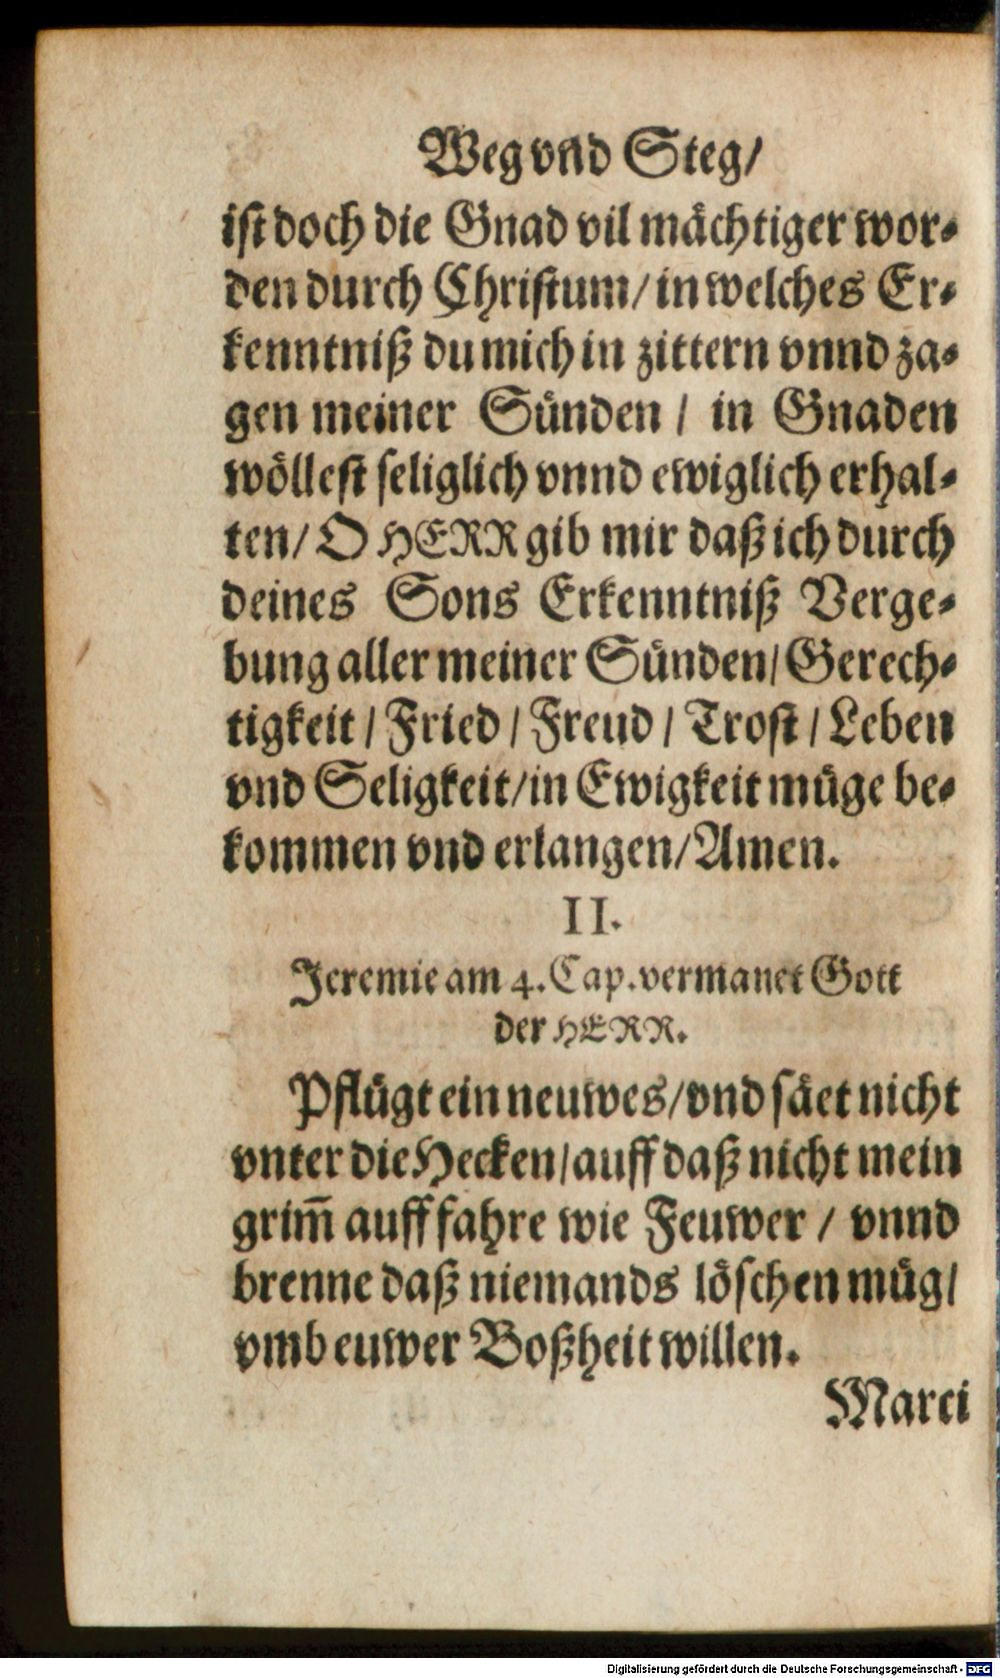 Weg vnd Steg/
ist doch die Gnad vil mächtiger wor-
den durch Christum/ in welches Er-
kenntniß du mich in zittern vnnd za-
gen meiner Sünden / in Gnaden
wöllest seliglich vnnd ewiglich erhal-
ten/ O HERR gib mir daß ich durch
deines Sons Erkenntniß Verge-
bung aller meiner Sünden/ Gerech-
tigkeit / Fried / Freud / Trost / Leben
vnd Seligkeit/ in Ewigkeit müge be-
kommen vnd erlangen/ Amen.
II.
Jeremie am 4. Cap. vermanet Gott
der HERR.
Pflügt ein neuwes/ vnd säet nicht
vnter die Hecken/ auff daß nicht mein
grim̃ auff fahre wie Feuwer / vnnd
brenne daß niemands löschen müg/
vmb euwer Boßheit willen.
Marci
Digitalisierung gefördert durch die Deutsche Forschungsgemeinschaft - DFG